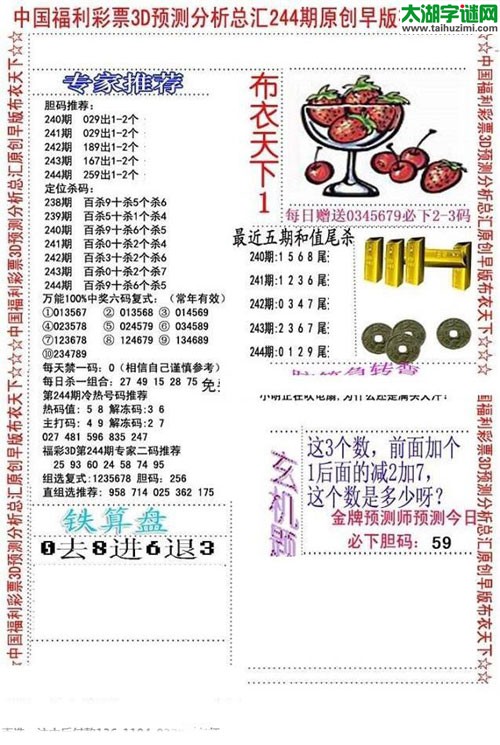 中国福利彩票3D预测分析总汇244期原创早版
太湖字谜网
www.taihuzimi.com
☆中国福利彩票3D预测分析总汇原创早版布衣天下☆☆
专家推荐
胆码推荐：
240期 029出1-2个
241期 029出1-2个
242期 189出1-2个
243期 167出1-2个
244期 259出1-2个
定位杀码：
238期 百杀9十杀5个杀6
239期 百杀5十杀1个杀4
240期 百杀9十杀6个杀7
241期 百杀3十杀2个杀4
242期 百杀1十杀2个杀6
243期 百杀0十杀2个杀7
244期 百杀0十杀6个杀5
万能100%中奖六码复式：（常年有效）
①013567 ② 013568 ③ 014569
④023578 ⑤ 024579 ⑥ 034589
⑦123678 ⑧ 124679 ⑨ 134689
⑩234789
每天禁一码：0（相信自己谨慎参考）
每日杀一组合：27 49 15 28 75 免
第244期冷热号码推荐
热码值：5 8 解冻码：3 6
主打码：4 9 解冻码：2 7
027 481 596 835 247
福彩3D第244期专家二码推荐
25 93 60 24 58 74 95
组选复式：1235678 胆码：256
直组选推荐：958 714 025 362 175
铁算盘
0去8进6退3
布衣天下1
每日赠送0345679必下2-3码
最近五期和值尾杀
240期:1 5 6 8 尾
241期:1 2 3 6 尾
242期:0 3 4 7 尾
243期:2 3 6 7 尾
244期:0 1 2 9 尾
脑筋急转弯
小明正在吹电扇,为什么还是满头大汗?
玄机题
这3个数，前面加个
1后面的减2加7，
这个数是多少呀？
金牌预测师预测今日
必下胆码： 59
☆中国福利彩票3D预测分析总汇原创早版布衣天下☆☆